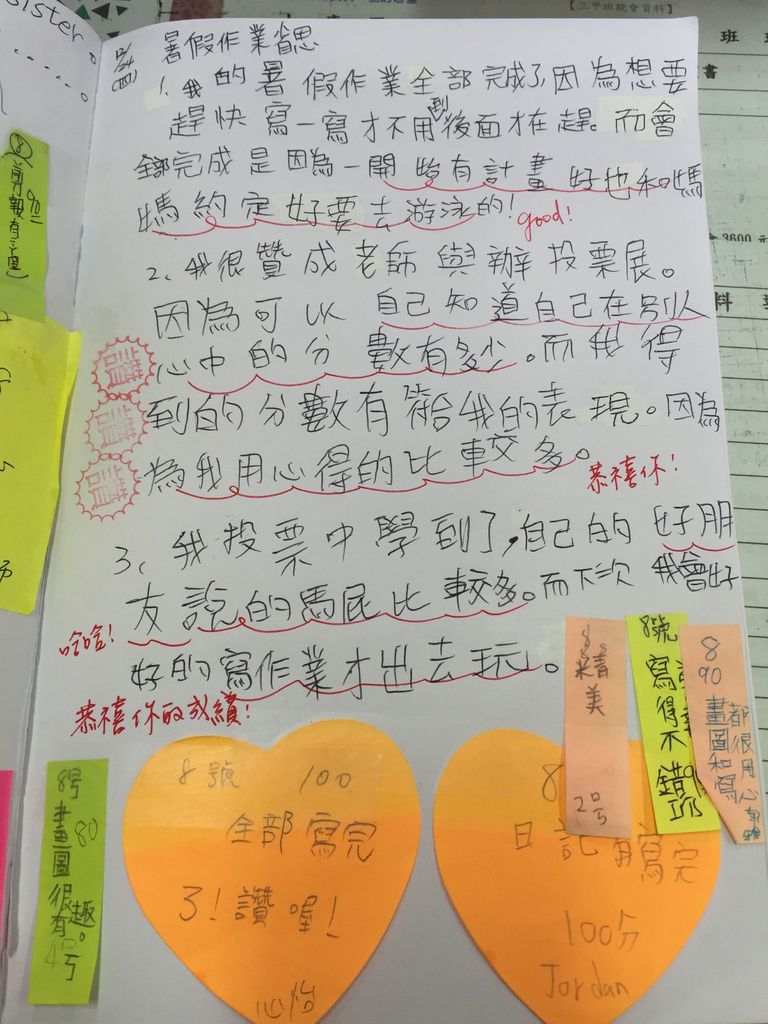 sister。
【三甲班親會資料】
班
書
3600元
料
暑假作業省思
(四)
1、我的暑假作業全部完成了,因為想要
趕快寫一寫才不用到後面才在趕。而會
全部完成是因為一開始有計畫好也和媽
媽約定好要去游泳的!
good!
2、我很贊成老師與辦投票展。
因為可以自己知道自己在別人
心中的分數有多少。而我得
到的分數有符合我的表現。因為
為我用心得的比較多。
讚
讚
讚
恭禧你!
3、我投票中學到了,自己的好朋
友說的馬屁比較多。而下次我會好
好的寫作業才出去玩。
哈哈!
恭禧你的成績!
8
精美
2号
8號
寫得不錯
8
90
畫圖和寫
都很用心
8号
80
畫圖很有趣。
4号
8號 100
全部寫完
3!讚喔!
心怡
8
日記有寫完
100分
Jordan